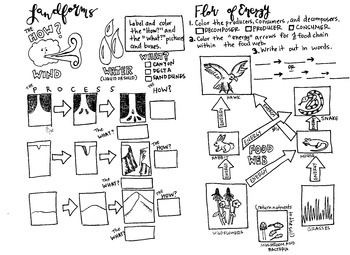 Landforms
The HOW?
WIND
Label and color
the "How?" and
the "What?" pictures
and boxes.
WATER
(LIQUID or SOLID)
WHAT?
CANYON
DELTA
SAND DUNES
PROCESS
The HOW?
The WHAT?
The HOW?
The WHAT?
The HOW?
The WHAT?
Flow of Energy
1. Color the producers, consumers, and decomposers.
DECOMPOSER PRODUCER CONSUMER
2. Color the "energy" arrows for 1 food chain
within the food web.
3. Write it out in words.
OR
HAWK
SNAKE
ENERGY
ENERGY
ENERGY
RABBIT
FOOD
WEB
MOUSE
ENERGY
ENERGY
ENERGY
WILDFLOWERS
return nutrients
MUSHROOM AND
BACTERIA
GRASSES